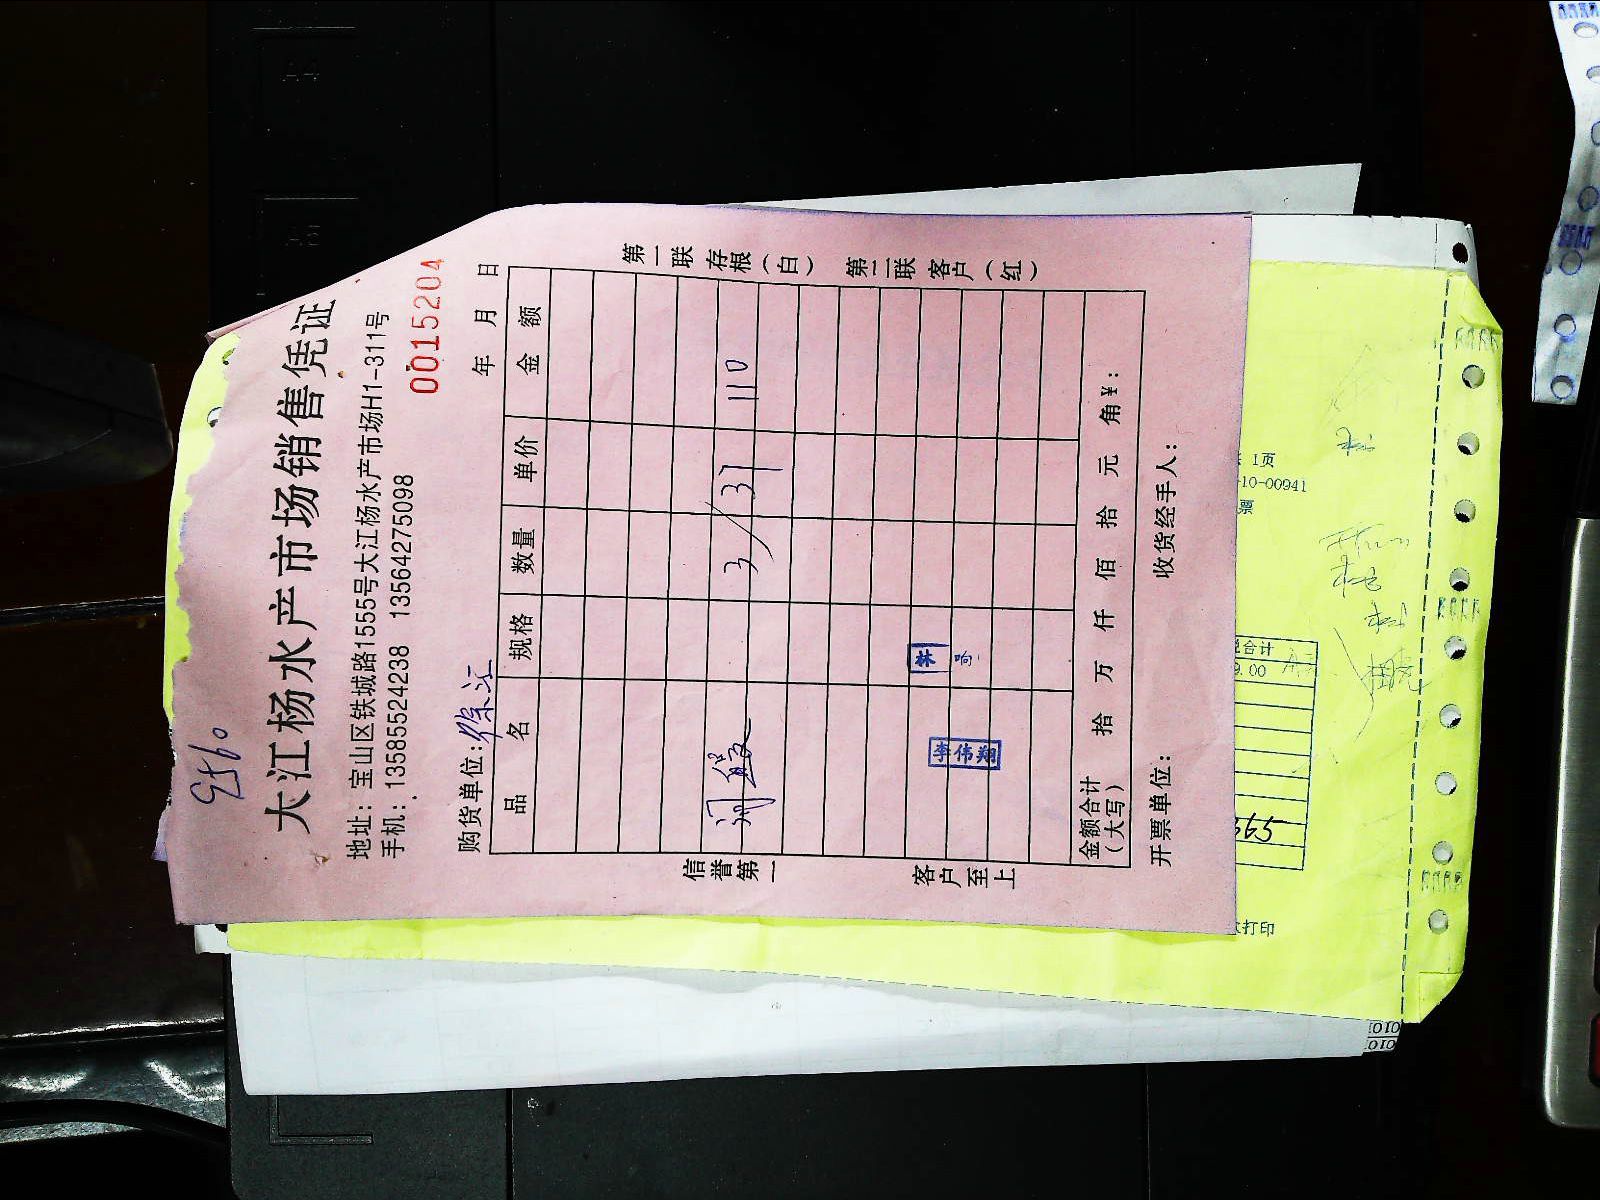 大江杨水产市场销售凭证
地址：宝山区铁城路1555号大江杨水产市场H1-311号
手机：13585524238 13564275098
0015204
购货单位：徐汇 年 月 日
品名 规格 数量 单价 金额
3 37 110
李伟翔
金额合计（大写） 拾 万 仟 佰 拾 元 角 ¥：
开票单位： 收货经手人：
信誉第一 客户至上
第一联存根（白） 第二联客户（红）
1页
-10-00941
合计
9.00
打印